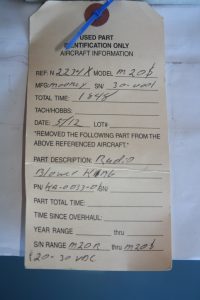 USED PART
IDENTIFICATION ONLY
AIRCRAFT INFORMATION
REF. N 2274X MODEL M20J
MFG. MOONEY S/N
TOTAL TIME: 1848
TACH/HOBBS:
DATE: 5/12 LOT#
"REMOVED THE FOLLOWING PART FROM THE
ABOVE REFERENCED AIRCRAFT."
PART DESCRIPTION: Radio
Blower
P/N S/N
PART TOTAL TIME:
TIME SINCE OVERHAUL:
YEAR RANGE thru
S/N RANGE M20R thru
20-30 VDC